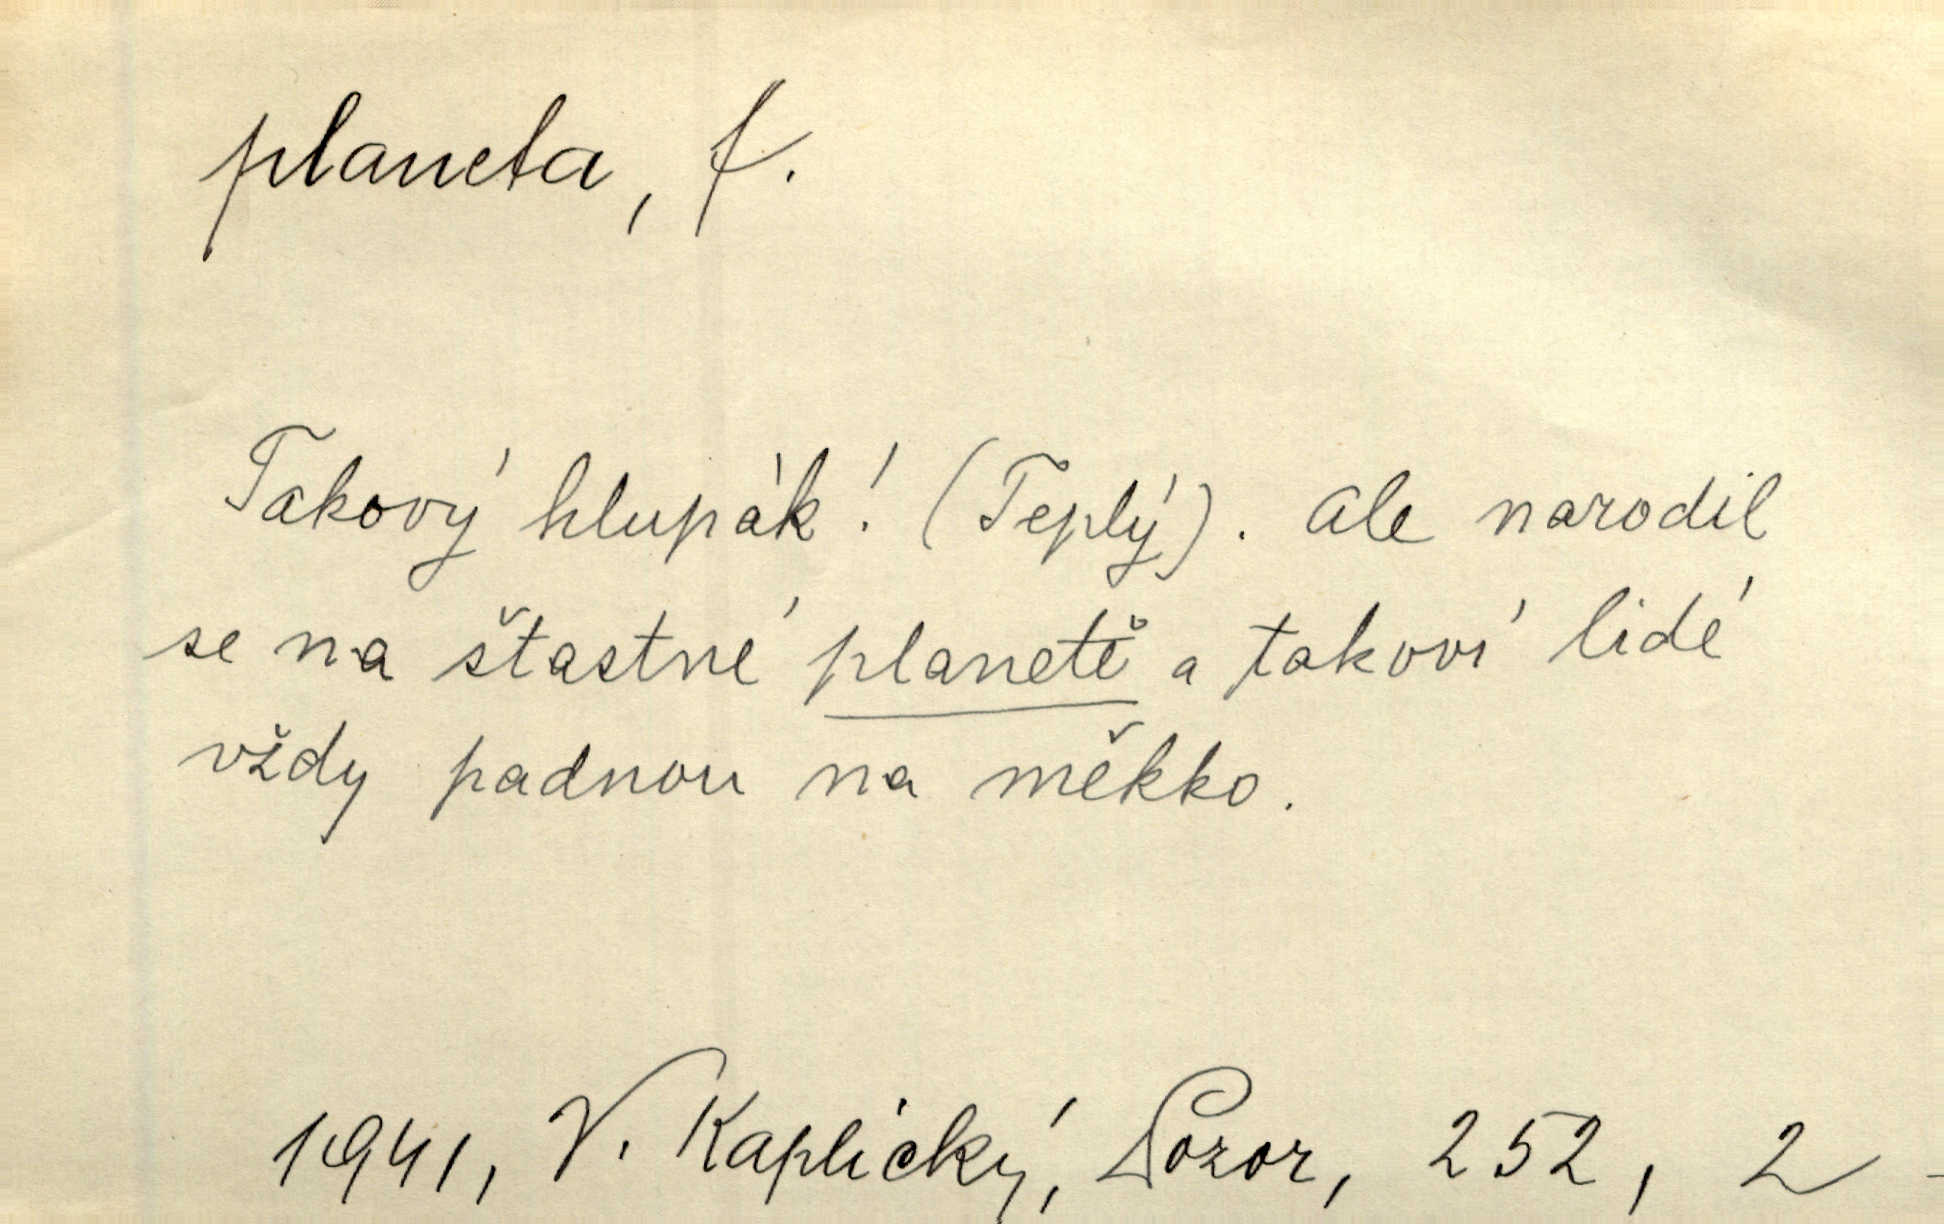 planeta, f.
Takový hlupák! (Teplý). Ale narodil
se na štastné planetě a takoví lidé
vždy padnou na měkko.
1941, V. Kaplický, Pozor, 252, 2